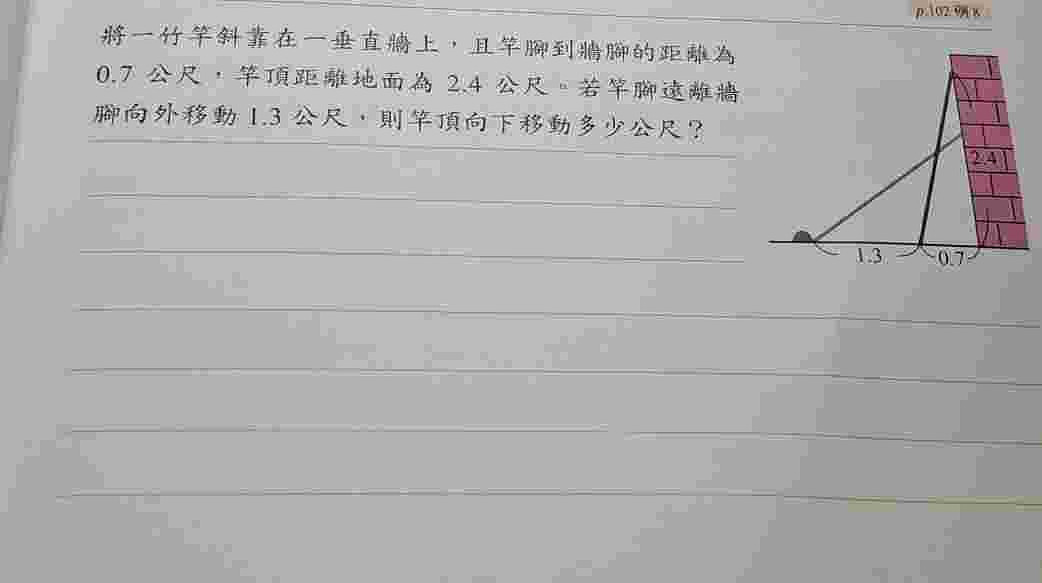 p.102 例 8
將一竹竿斜靠在一垂直牆上，且竿腳到牆腳的距離為
0.7 公尺，竿頂距離地面為 2.4 公尺。若竿腳遠離牆
腳向外移動 1.3 公尺，則竿頂向下移動多少公尺？
2.4
1.3
0.7